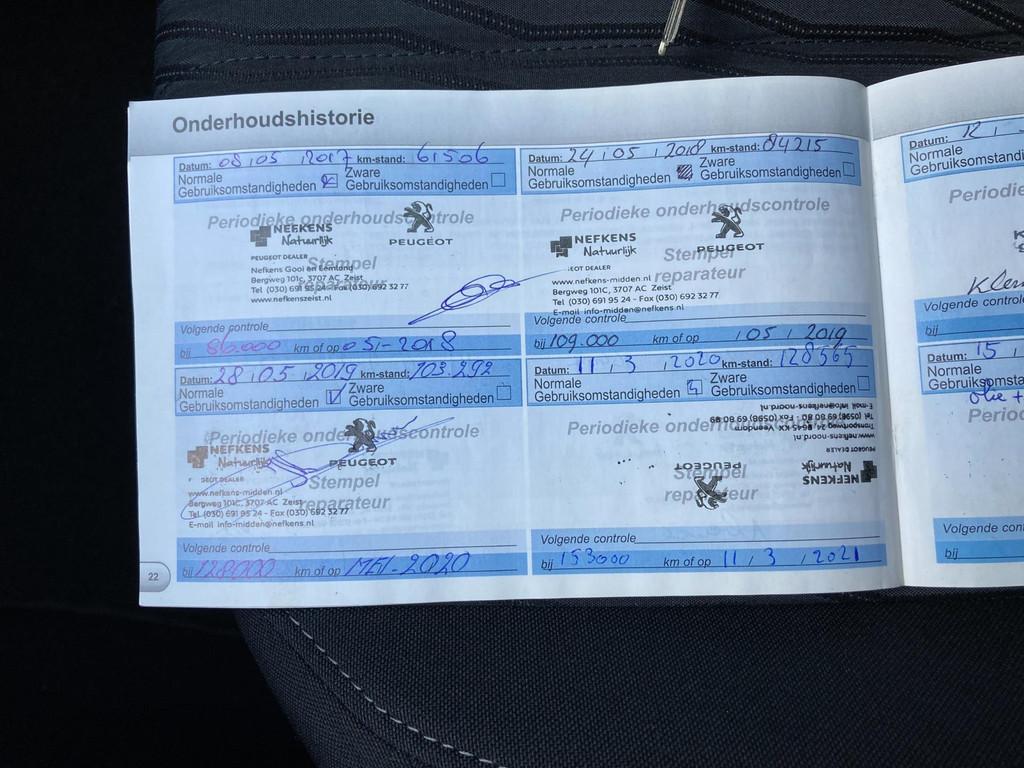 Onderhoudshistorie
Datum: 08 / 05 / 2017 km-stand: 61506
Normale Gebruiksomstandigheden Zware Gebruiksomstandigheden
Periodieke onderhoudscontrole
NEFKENS
Natuurlijk
PEUGEOT
PEUGEOT DEALER
Stempel reparateur
Nefkens Gooi en Eemland
Bergweg 101c, 3707 AC Zeist
Tel (030) 691 95 24 - Fax (030) 692 32 77
www.nefkenszeist.nl
Volgende controle
bij 86.000 km of op 05-2018
Datum: 24 / 05 / 2018 km-stand: 84215
Normale Gebruiksomstandigheden Zware Gebruiksomstandigheden
Periodieke onderhoudscontrole
NEFKENS
Natuurlijk
PEUGEOT
EOT DEALER
Stempel reparateur
www.nefkens-midden.nl
Bergweg 101C, 3707 AC Zeist
Tel (030) 691 95 24 - Fax (030) 692 32 77
E-mail info-midden@nefkens.nl
Volgende controle
bij 109.000 km of op / 05 / 2019
Datum: 28 / 05 / 2019 km-stand: 103.292
Normale Gebruiksomstandigheden Zware Gebruiksomstandigheden
Periodieke onderhoudscontrole
NEFKENS
Natuurlijk
PEUGEOT
GEOT DEALER
Stempel reparateur
www.nefkens-midden.nl
Bergweg 101C, 3707 AC Zeist
Tel (030) 691 95 24 - Fax (030) 692 32 77
E-mail info-midden@nefkens.nl
Volgende controle
bij 128000 km of op MEI-2020
22
Datum: 11 / 3 / 2020 km-stand: 128565
Normale Gebruiksomstandigheden Zware Gebruiksomstandigheden
Periodieke onderhoudscontrole
Stempel reparateur
NEFKENS
Natuurlijk
PEUGEOT
PEUGEOT DEALER
www.nefkens-noord.nl
Transportweg 24, 9645 KX Veendam
Tel (0598) 69 80 80 - Fax (0598) 69 80 89
E-mail info-noord@nefkens.nl
Volgende controle
bij 153000 km of op 11 / 3 / 2021
Datum: 12 /
Normale
Gebruiksomstandi
Periodie
Volgende controle
bij
Datum: 15 /
Normale
Gebruiksomsta
olie +
Perio
Volgende con
bij